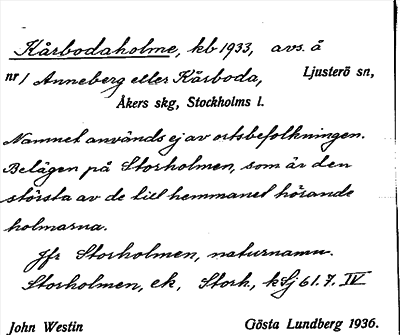 Kårbodaholme, kb 1933, avs. å
nr 1 Anneberg eller Kårboda, Ljusterö sn,
Åkers skg, Stockholms l.
Namnet används ej av ortsbefolkningen.
Belägen på Storholmen, som är den
största av de till hemmanet hörande
holmarna.
Jfr Storholmen, naturnamn.
Storholmen, ek, Storh, kSj 61.7. IV
John Westin Gösta Lundberg 1936.